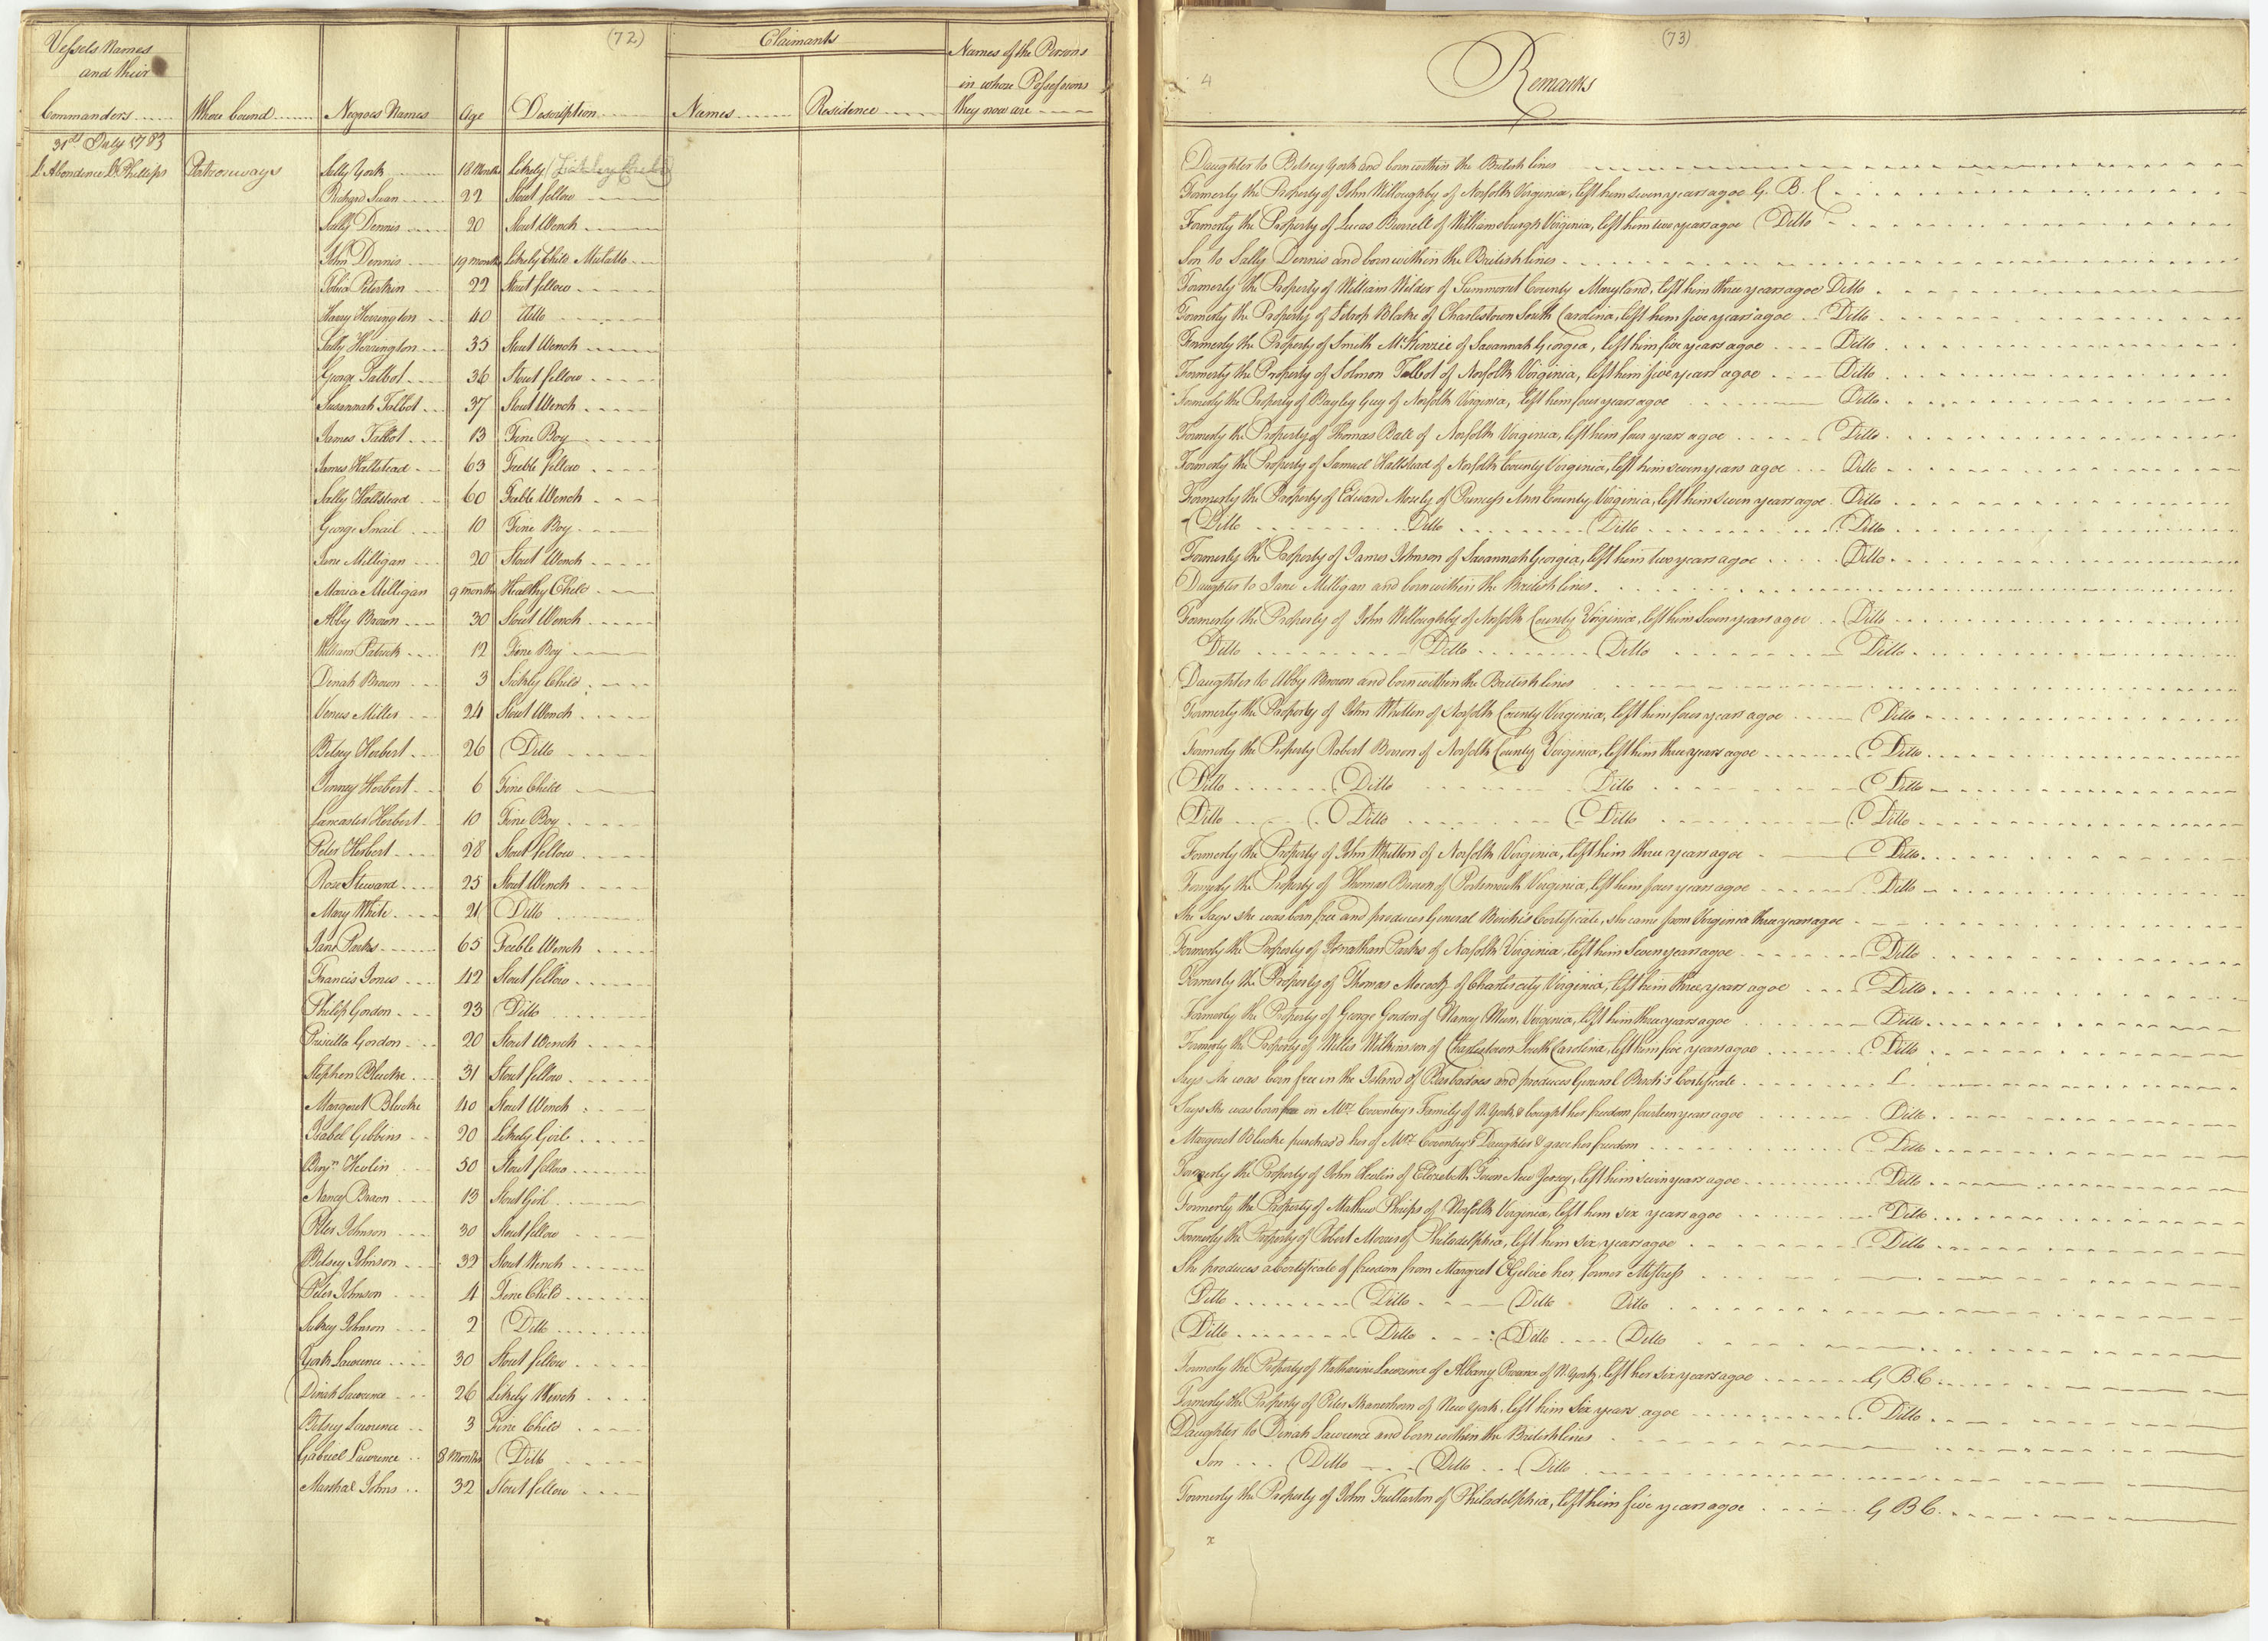 (72)
Vessels Names
and their
Commanders
Where bound
Negroes Names
Age
Description
Claimants
Names
Residence
Names of the Persons
in whose Possessions
they now are
31st July 1783
L'Abondence Lt Phillips Portroseways Sally York 18 Months Likely
Richard Swan 22 Stout fellow
Sally Dennis 20 Stout Wench
John Dennis 19 months Likely Child Mulatto
22 Stout fellow
Harry Herrington 40 Ditto
Sally Herrington 35 Stout Wench
George Talbot 36 Stout fellow
Susannah Talbot 37 Stout Wench
James Talbot 13 Fine Boy
James Halstead 63 Feeble fellow
Sally Halstead 60 Feeble Wench
George Snail 10 Fine Boy
Jane Milligan 20 Stout Wench
Maria Milligan 9 months Healthy Child
Abby Brown 30 Stout Wench
William Patrick 12 Fine Boy
Dinah Brown 3 Sickly Child
Venus Miller 24 Stout Wench
Betsey Herbert 26 Ditto
Jenney Herbert 6 Fine Child
Lancaster Herbert 10 Fine Boy
Peter Herbert 28 Stout fellow
Rose Steward 25 Stout Wench
Mary White 21 Ditto
Jane Parks 65 Feeble Wench
Francis Jones 42 Stout fellow
Philip Gordon 23 Ditto
Priscilla Gordon 20 Stout Wench
Stephen Blucke 31 Stout fellow
Margaret Blucke 40 Stout Wench
Isabel Gibbins 20 Likely Girl
Benjn Hewlin 50 Stout fellow
Nancy Brown 13 Stout Girl
Peter Johnson 30 Stout fellow
Betsey Johnson 32 Stout Wench
Peter Johnson 4 Fine Child
Johnson 2 Ditto
York Lawrence 30 Stout fellow
Dinah Lawrence 26 Likely Wench
Betsey Lawrence 3 Fine Child
Gabriel Lawrence 8 Months Ditto
Marshal Johns 32 Stout fellow
(73)
4
Remarks
Daughter to Betsey York and born within the British lines
Formerly the Property of John Willoughby of Norfolk Virginia, left him seven years agoe G. B. C
Formerly the Property of Lucas Burrell of Williamsburgh Virginia, left him two years agoe Ditto
Son to Sally Dennis and born within the British lines
Formerly the Property of William Wilder of Summerset County Maryland, left him three years agoe Ditto
Formerly the Property of Blake of Charlestown South Carolina, left him five years agoe Ditto
Formerly the Property of Smith McKenzie of Savannah Georgia, left him five years agoe Ditto
Formerly the Property of Solmon Talbot of Norfolk Virginia, left him five years agoe Ditto
Formerly the Property of Bagley Guy of Norfolk Virginia, left him four years agoe Ditto
Formerly the Property of Thomas Ball of Norfolk Virginia, left him four years agoe Ditto
Formerly the Property of Samuel Halstead of Norfolk County Virginia, left him seven years agoe Ditto
Formerly the Property of Edward Mosely of Princess Ann County Virginia, left him seven years agoe Ditto
Ditto Ditto Ditto Ditto
Formerly the Property of James Johnson of Savannah Georgia, left him two years agoe Ditto
Daughter to Jane Milligan and born within the British lines
Formerly the Property of John Willoughby of Norfolk County Virginia, left him Seven years agoe Ditto
Ditto Ditto Ditto Ditto
Daughter to Abby Brown and born within the British lines
Formerly the Property of John Whitten of Norfolk County Virginia, left him four years agoe Ditto
Formerly the Property Robert of Norfolk County Virginia, left him three years agoe Ditto
Ditto Ditto Ditto Ditto
Ditto Ditto Ditto Ditto
Formerly the Property of John Whitton of Norfolk Virginia, left him three years agoe Ditto
Formerly the Property of Thomas Brown of Portsmouth Virginia, left him four years agoe Ditto
She Says she was born free and produces General Birch's Certificate, she came from Virginia three years agoe
Formerly the Property of Jonathan Parks of Norfolk Virginia, left him Seven years agoe Ditto
Formerly the Property of Thomas of Charles city Virginia, left him three years agoe Ditto
Formerly the Property of George Gordon of Nancy Mun, Virginia, left him three years agoe Ditto
Formerly the Property of Willis Wilkinson of Charlestown South Carolina, left him five years agoe Ditto
Says he was born free in the Island of Barbadoes and produces General Birch's Certificate
Says She was born free in Mrs Coventry's Family of N. York, & bought her freedom fourteen years agoe Ditto
Margaret Blucke purchas'd her of Mrs Coventry's Daughter & gave her freedom Ditto
Formerly the Property of John Hewlin of Elizabeth Town New Jersey, left him seven years agoe Ditto
Formerly the Property of Mathew Phrips of Norfolk Virginia, left him six years agoe Ditto
Formerly the Property of Robert Morris of Philadelphia, left him six years agoe Ditto
She produces a Certificate of freedom from Margret her former Mistress
Ditto Ditto Ditto Ditto
Ditto Ditto Ditto Ditto
Formerly the Property of Katharine Lawrence of Albany Province of N. York, left her six years agoe G B. C.
Formerly the Property of Peter of New York, left him Six years agoe Ditto
Daughter to Dinah Lawrence and born within the British lines
Son Ditto Ditto Ditto
Formerly the Property of John Fullarton of Philadelphia, left him five years agoe G B C.
x